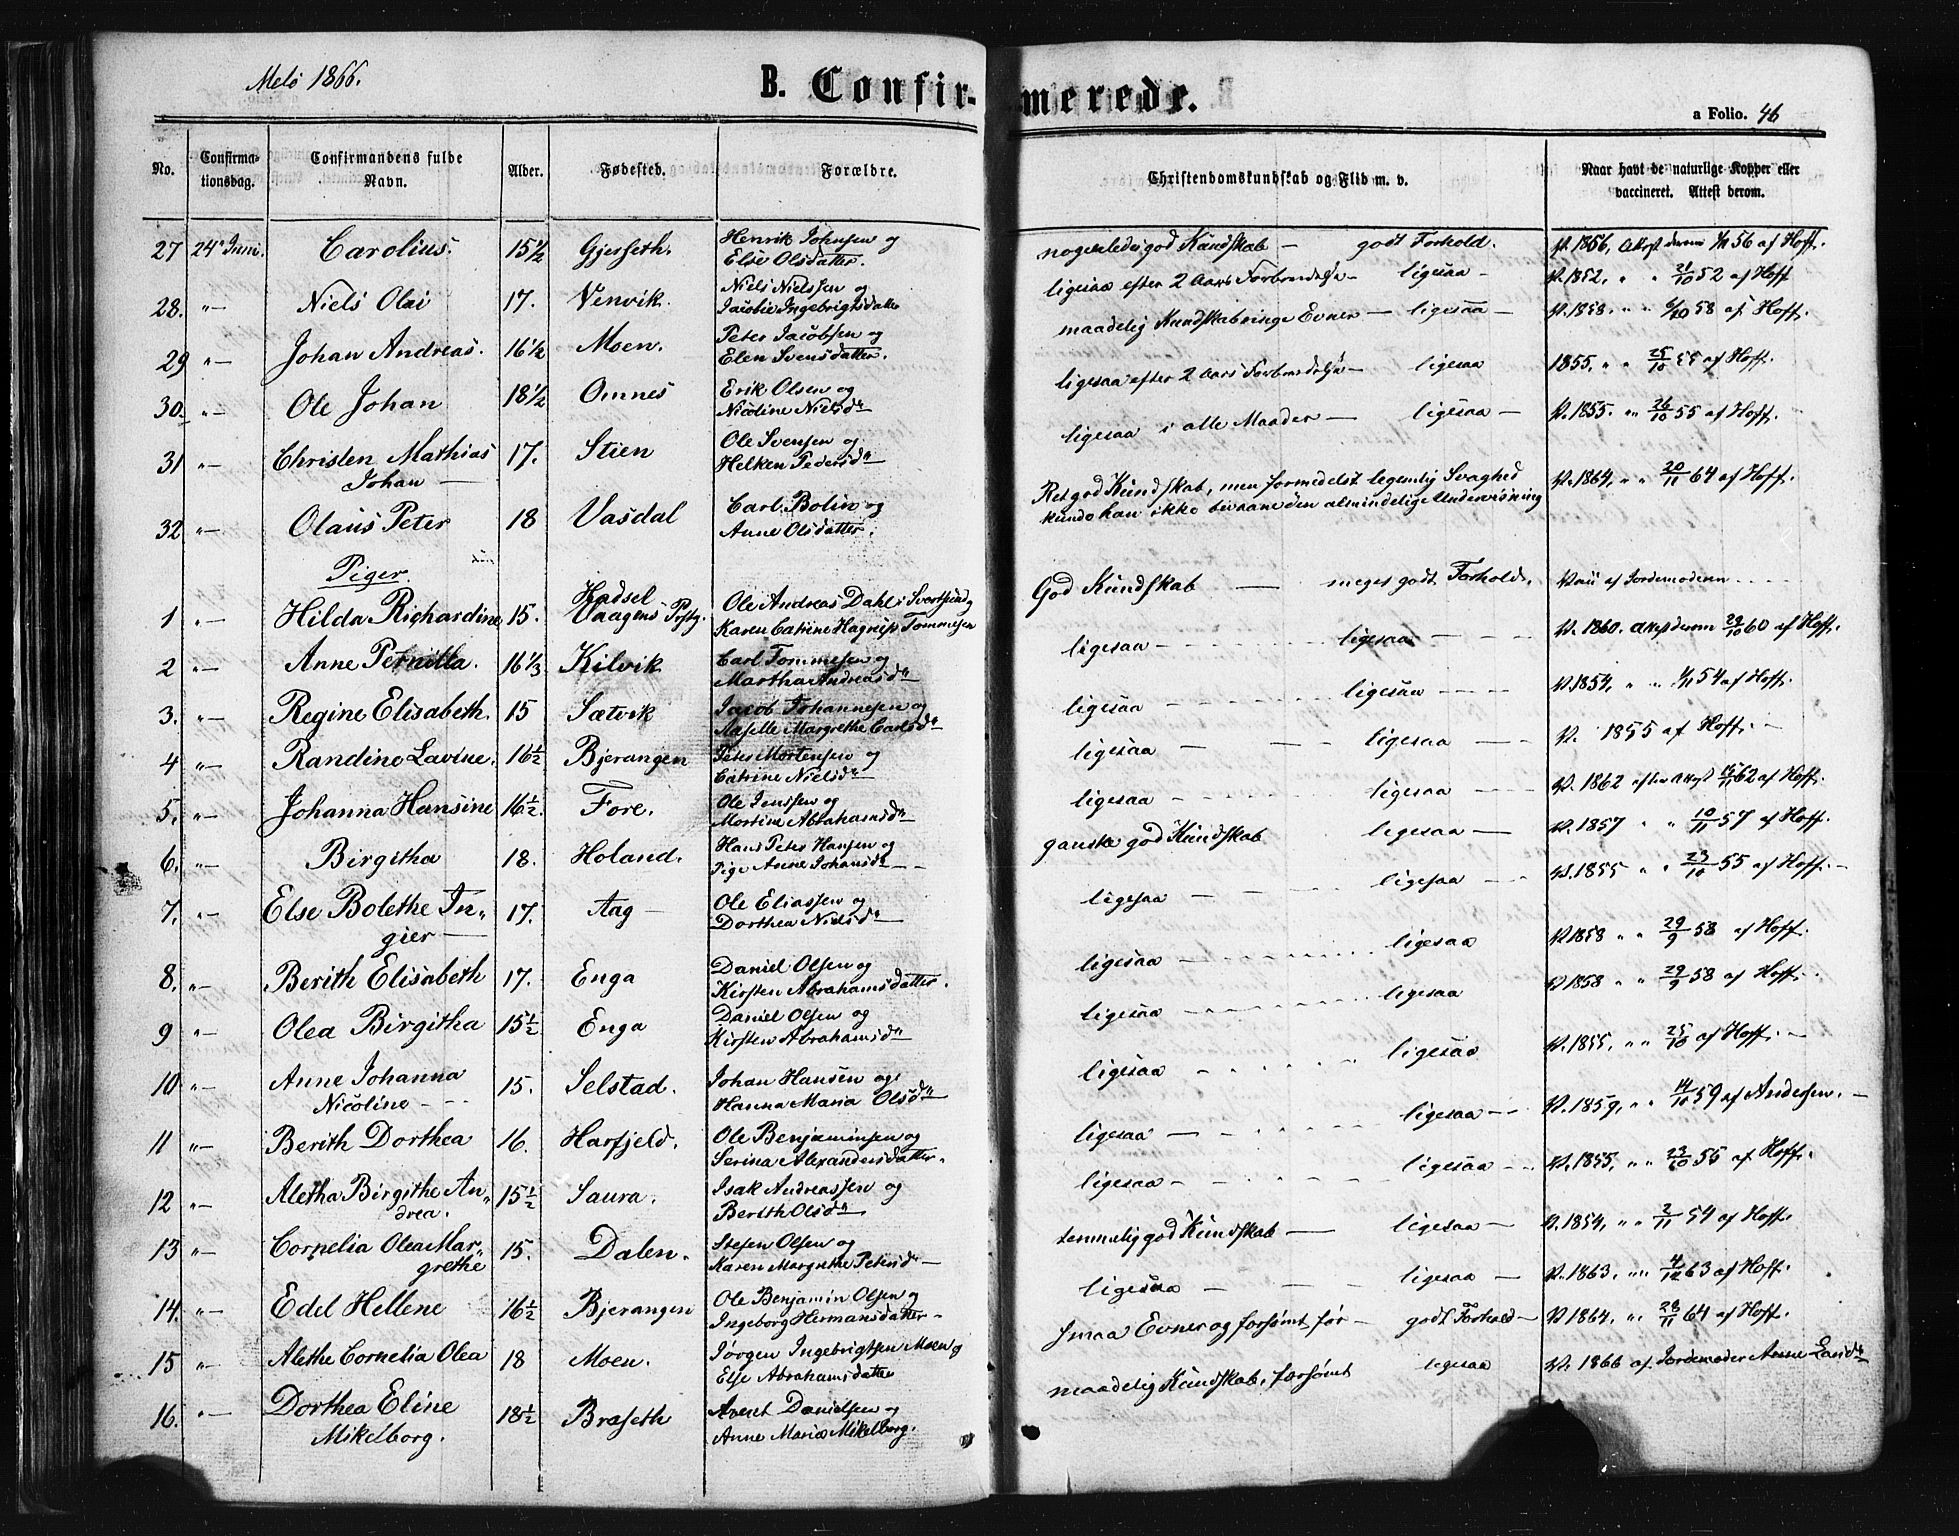 Melö 1866.
B. Confirmerede.
a Folio. 46
No. Confirmationsdag. Confirmandens fulde Navn. Alder. Fødested. Forældre. Christendomskundskab og Flid m. v. Naar havt de naturlige Kopper eller vaccineret. Attest derom.
27 24de Juni. Carolius. 15 1/2 Gjesseth. Henrik Johnsen og Else Olsdatter. nogenledes god Kundskab — godt Forhold. V. 1856, Attest derom 56 af Hoff.
28. "— Niels Olai 17. Venvik. Niels Nielssen og Jacobie Ingebrigtsdatter ligesaa efter 2 Aars Forberedelse — ligesaa — V. 1852, " " 21/10 52 af Hoff
29 "— Johan Andreas. 16 1/2 Moen. Peter Jacobsen og Elen Svensdatter. maadelig Kundskab ringe Evner — ligesaa — V. 1858. " " 6/10 58 af Hoff.
30. "— Ole Johan 18 1/2 Omnes Erik Olsen og Nicoline Nielsd. ligesaa efter 2 Aars Forberedelse — ligesaa 1855. " " 25/10 55 af Hoff.
31 "— Christen Mathias Johan — 17. Stien Ole Svensen og Helken Pedersd. ligesaa i alle Maader — ligesaa — V. 1855. " " 26/10 55 af Hoff.
32 "— Olaus Peter 18 Vasdal Carl Bolin og Anne Olsdatter. Ret god Kundskab, men formedelst legemlig Svaghed V. 1864, " " 20/11 64 af Hoff.
kunde han ikke bivaane den almindelige Undervisning
Piger.
1 "— Hilda Richardine 15. Hadsel Vaagens Prstg. Ole Andreas Dahl i Svartsund og Karen Catrine Hagrup Tommesen God Kundskab — meget godt Forhold. Vacc af Jordemoderen
2 "— Anne Pernilla. 16 1/3 Kilvik Carl Tommesen og Martha Andreasd. ligesaa — ligesaa — V. 1860. Attest derom 29/10 60 af Hoff.
3. "— Regine Elisabeth. 15 Sætvik Jacob Johannesen og Aaselle Margrethe Carlsd. ligesaa — ligesaa — V. 1854, " " 54 af Hoff.
4 "— Randine Lavine. 16 1/2 Bjerangen Peter Mortensen og Catrine Nielsd. ligesaa — ligesaa — V. 1855 af Hoff. —
5. "— Johanna Hansine 16 1/2. Fore. Ole Jenssen og Mortine Abrahamsd. ligesaa — ligesaa — V. 1862 efter Attest 62 af Hoff.
6. "— Birgitha 18. Holand. Hans Peter Hansen og Pige Anne Johansd. — ganske god Kundskab ligesaa — V. 1857 " " 10/11 57 af Hoff.
7. "— Else Bolethe Ingier — 17. Aag — Ole Eliassen og Dorthea Nielsd. ligesaa — ligesaa — V. 1855 " " 23/10 55 af Hoff. —
8. "— Berith Elisabeth 17. Enga Daniel Olsen og Kirsten Abrahamsdatter. ligesaa — ligesaa V. 1858 " " 29/9 58 af Hoff.
9 "— Olea Birgitha 15 1/2 Enga Daniel Olsen og Kirsten Abrahamsd. ligesaa — ligesaa V. 1858 " " 29/9 58 af Hoff.
10 "— Anne Johanna Nicoline — 15. Selstad. Johan Hansen og Hanna Maria Olsd. ligesaa — ligesaa V. 1855, " " 25/10 af Hoff. —
11 "— Berith Dorthea 16. Harfjeld. Ole Benjaminsen og Serina Alexandersdatter. ligesaa — ligesaa — V. 1859, " " 14/10 59 af Andersen. —
12 "— Aletha Birgithe Andrea. 15 1/2 Saura. Isak Andreassen og Berith Olsd. ligesaa — ligesaa — V. 1855, " " 23/10 55 af Hoff.
13 "— Cornelia Olea Margrethe 15. Dalen. Stefen Olsen og Karen Margrethe Petersd. — temmelig god Kundskab — ligesaa — V. 1854, " " 2/11 54 af Hoff.
14. "— Edel Hellene 16 1/2 Bjerangen Ole Benjamin Olsen og Ingeborg Hermansdatter — ligesaa — ligesaa — V. 1863, " " 4/12 63 af Hoff.
15 "— Alethe Cornelia Olea 18 Moen. Jørgen Ingebrigtsen Moen og Else Abrahamsdatter smaa Evner og forsømt før — godt Forhold — V. 1864, " " 28/11 64 af Hoff.
16. "— Dorthea Eline Mikelborg. 18 1/2 Braseth Avent Danielsen og Anne Maria Mikelborg. maadelig Kundskab, forsømt ligesaa V. 1866 af Jordemoder Anne Larsd.